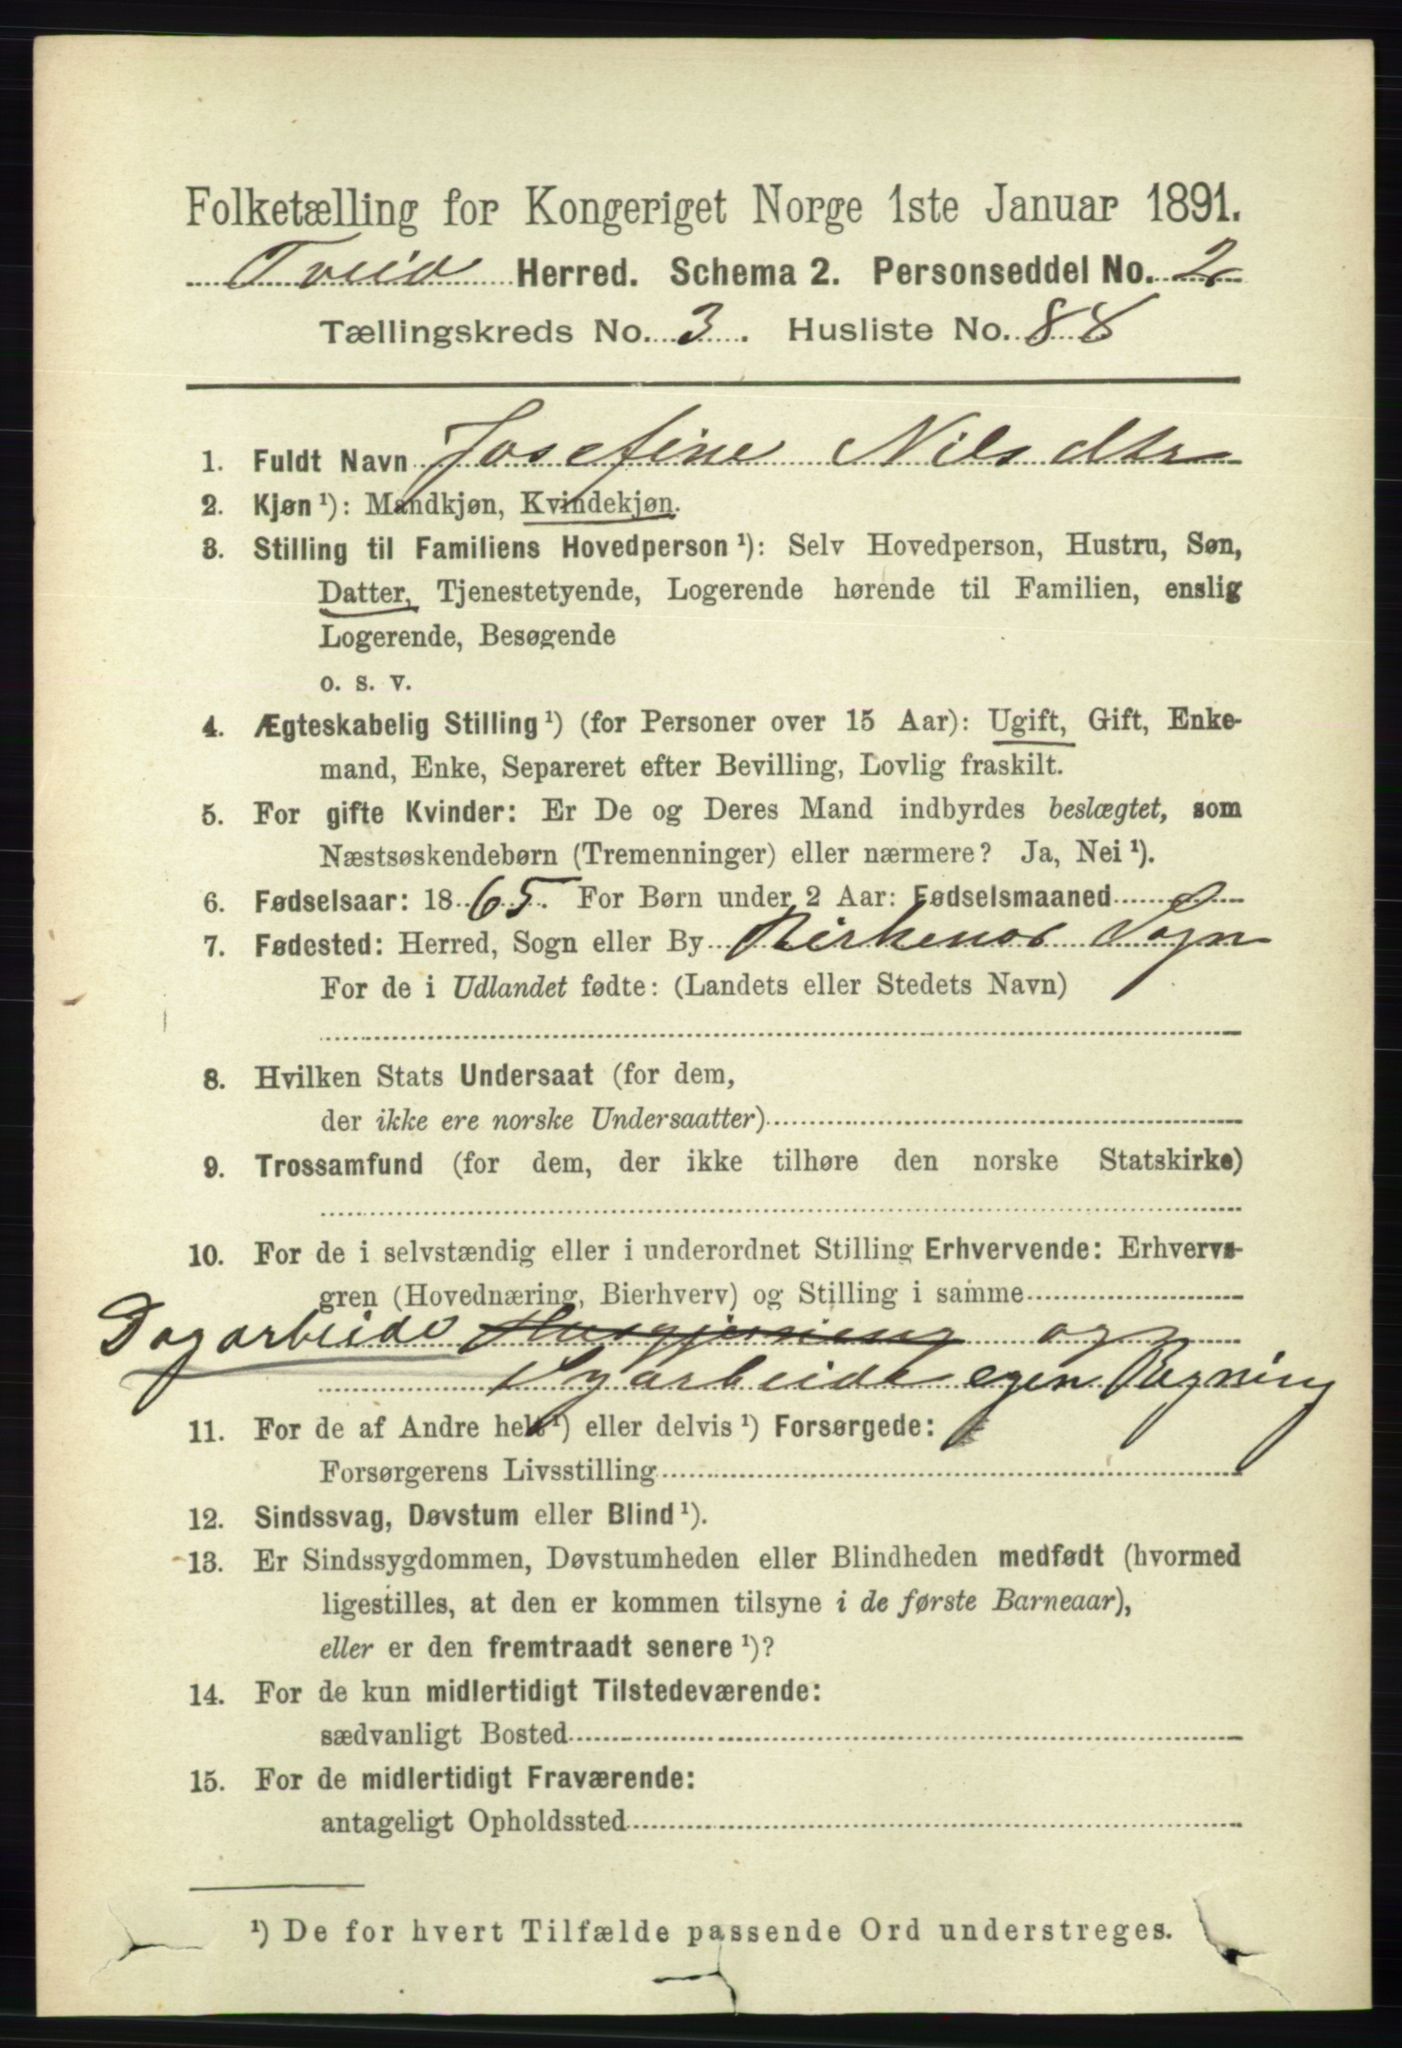 Folketælling for Kongeriget Norge 1ste Januar 1891.
Tveid Herred. Schema 2. Personseddel No. 2
Tællingskreds No. 3. Husliste No. 88
1. Fuldt Navn Josefine Nilsdtr
2. Kjøn¹): Mandkjøn, Kvindekjøn.
3. Stilling til Familiens Hovedperson¹): Selv Hovedperson, Hustru, Søn,
Datter, Tjenestetyende, Logerende hørende til Familien, enslig
Logerende, Besøgende
o. s. v.
4. Ægteskabelig Stilling¹) (for Personer over 15 Aar): Ugift, Gift, Enke-
mand, Enke, Separeret efter Bevilling, Lovlig fraskilt.
5. For gifte Kvinder: Er De og Deres Mand indbyrdes beslægtet, som
Næstsøskendebørn (Tremenninger) eller nærmere? Ja, Nei¹).
6. Fødselsaar: 1865. For Børn under 2 Aar: Fødselsmaaned
7. Fødested: Herred, Sogn eller By Birkenes Sogn
For de i Udlandet fødte: (Landets eller Stedets Navn)
8. Hvilken Stats Undersaat (for dem,
der ikke ere norske Undersaatter)
9. Trossamfund (for dem, der ikke tilhøre den norske Statskirke)
10. For de i selvstændig eller i underordnet Stilling Erhvervende: Erhvervs-
gren (Hovednæring, Bierhverv) og Stilling i samme
Dagarbeide Husgjerning og
Syarbeide egen Regning
11. For de af Andre helt¹) eller delvis¹) Forsørgede:
Forsørgerens Livsstilling
12. Sindssvag, Døvstum eller Blind¹).
13. Er Sindssygdommen, Døvstumheden eller Blindheden medfødt (hvormed
ligestilles, at den er kommen tilsyne i de første Barneaar),
eller er den fremtraadt senere¹)?
14. For de kun midlertidigt Tilstedeværende:
sædvanligt Bosted
15. For de midlertidigt Fraværende:
antageligt Opholdssted
¹) De for hvert Tilfælde passende Ord understreges.